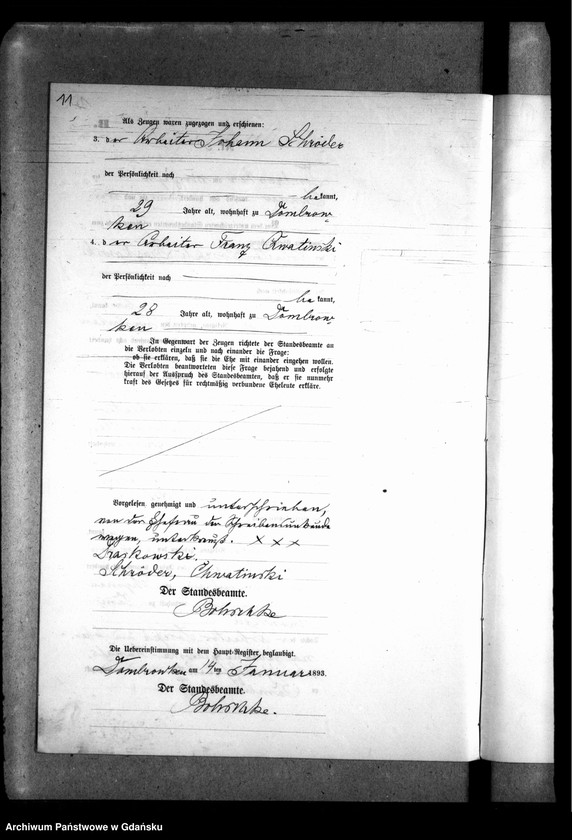 11
Als Zeugen waren zugezogen und erschienen:
3. der Arbeiter Johann Schröder
der Persönlichkeit nach
be kannt,
29 Jahre alt, wohnhaft zu Dombrow-
ken
4. der Arbeiter Franz Kwatinski
der Persönlichkeit nach
be kannt,
28 Jahre alt, wohnhaft zu Dombrow-
ken
In Gegenwart der Zeugen richtete der Standesbeamte an
die Verlobten einzeln und nach einander die Frage:
ob sie erklären, daß sie die Ehe mit einander eingehen wollen.
Die Verlobten beantworteten diese Frage bejahend und erfolgte
hierauf der Ausspruch des Standesbeamten, daß er sie nunmehr
kraft des Gesetzes für rechtmäßig verbundene Eheleute erkläre.
Vorgelesen, genehmigt und unterschrieben,
von der Ehefrau der Schreibensunkunde
wegen, unterkreuzt. × × ×
Draskowski.
Schröder, Chwatinski
Der Standesbeamte.
Bohschke
Die Uebereinstimmung mit dem Haupt-Register, beglaubigt.
Dombrowken am 14 ten Januar 1893.
Der Standesbeamte.
Bohschke.
Archiwum Państwowe w Gdańsku